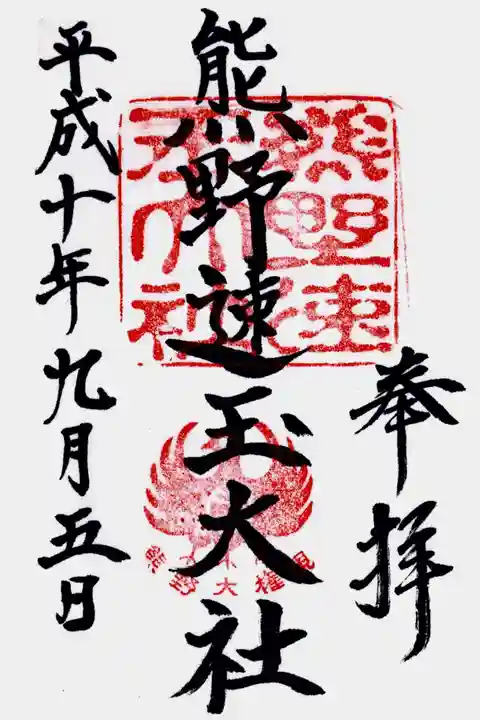 奉拝
熊野速玉大社
平成十年九月五日
熊野速玉大社
熊野大権現